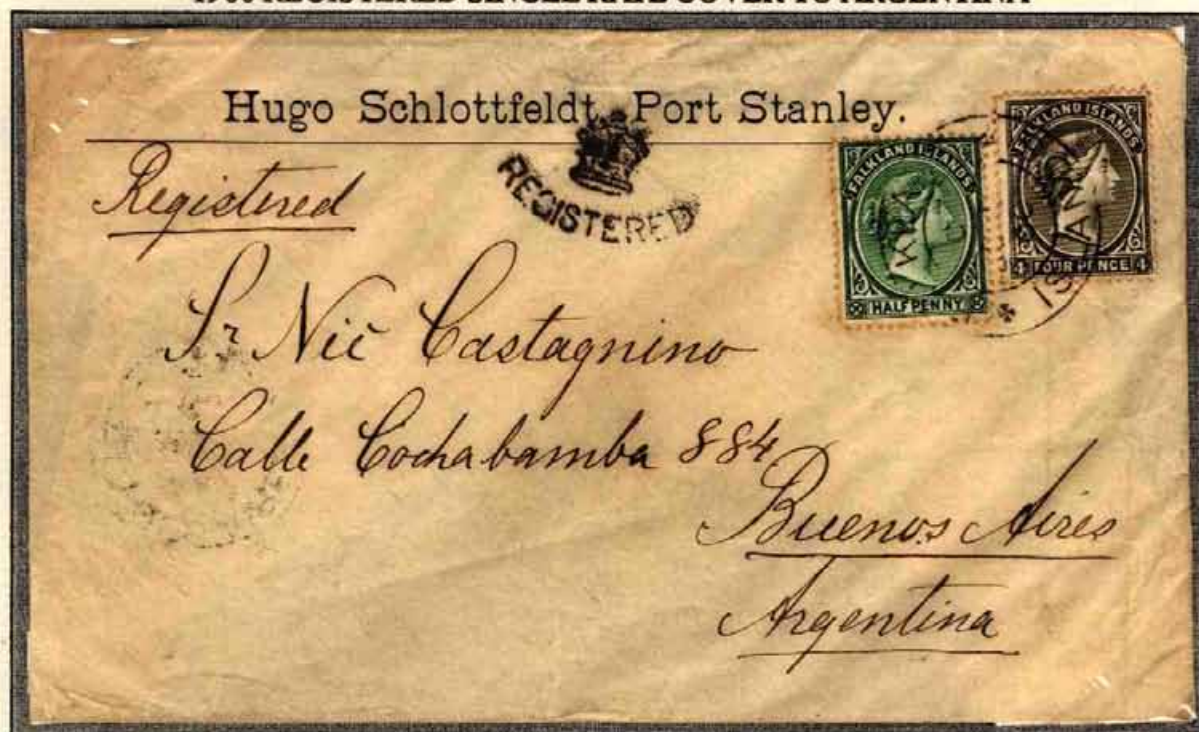 REGISTERED SINGLE RATE COVER TO ARGENTINA
Hugo Schlottfeldt, Port Stanley.
Registered
REGISTERED
FALKLAND ISLANDS
HALF PENNY
FALKLAND ISLANDS
4 FOUR PENCE 4
Sr Nic Castagnino
Calle Cochabamba 884
Buenos Aires
Argentina